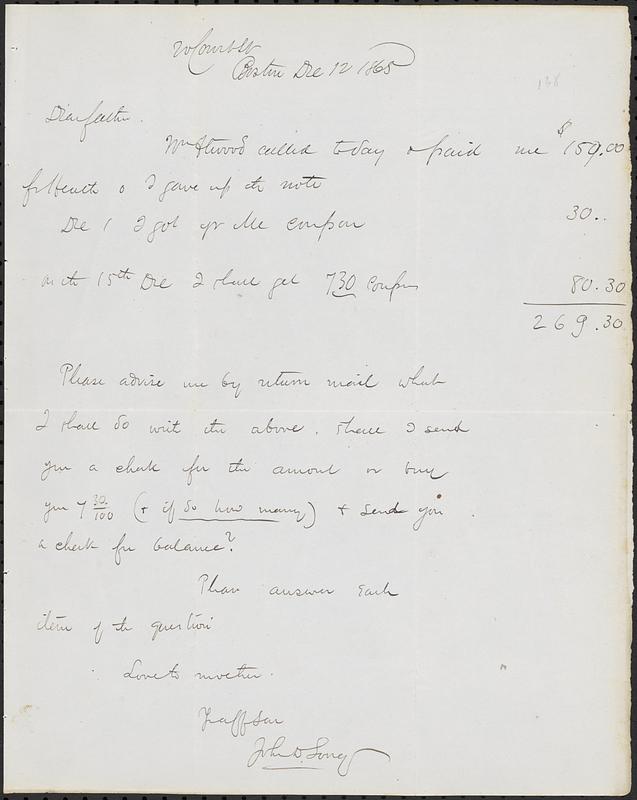 20 Court St
Boston Dec 12 1865
168
Dear father.
Wm Atwood called today & paid me $159.00
fr Heath & I gave up the note
Dec 1 I got yr Me coupon 30..
on the 15th Dec I shall get 730 Coupons 80.30
269.30
Please advise me by return mail what
I shall do with the above. Shall I send
you a check for the amount or buy
you 7 30/100 (& if so how many) & send you
a check for balance?
Please answer each
item of the question
Love to mother.
Yr aff son
John D. Long